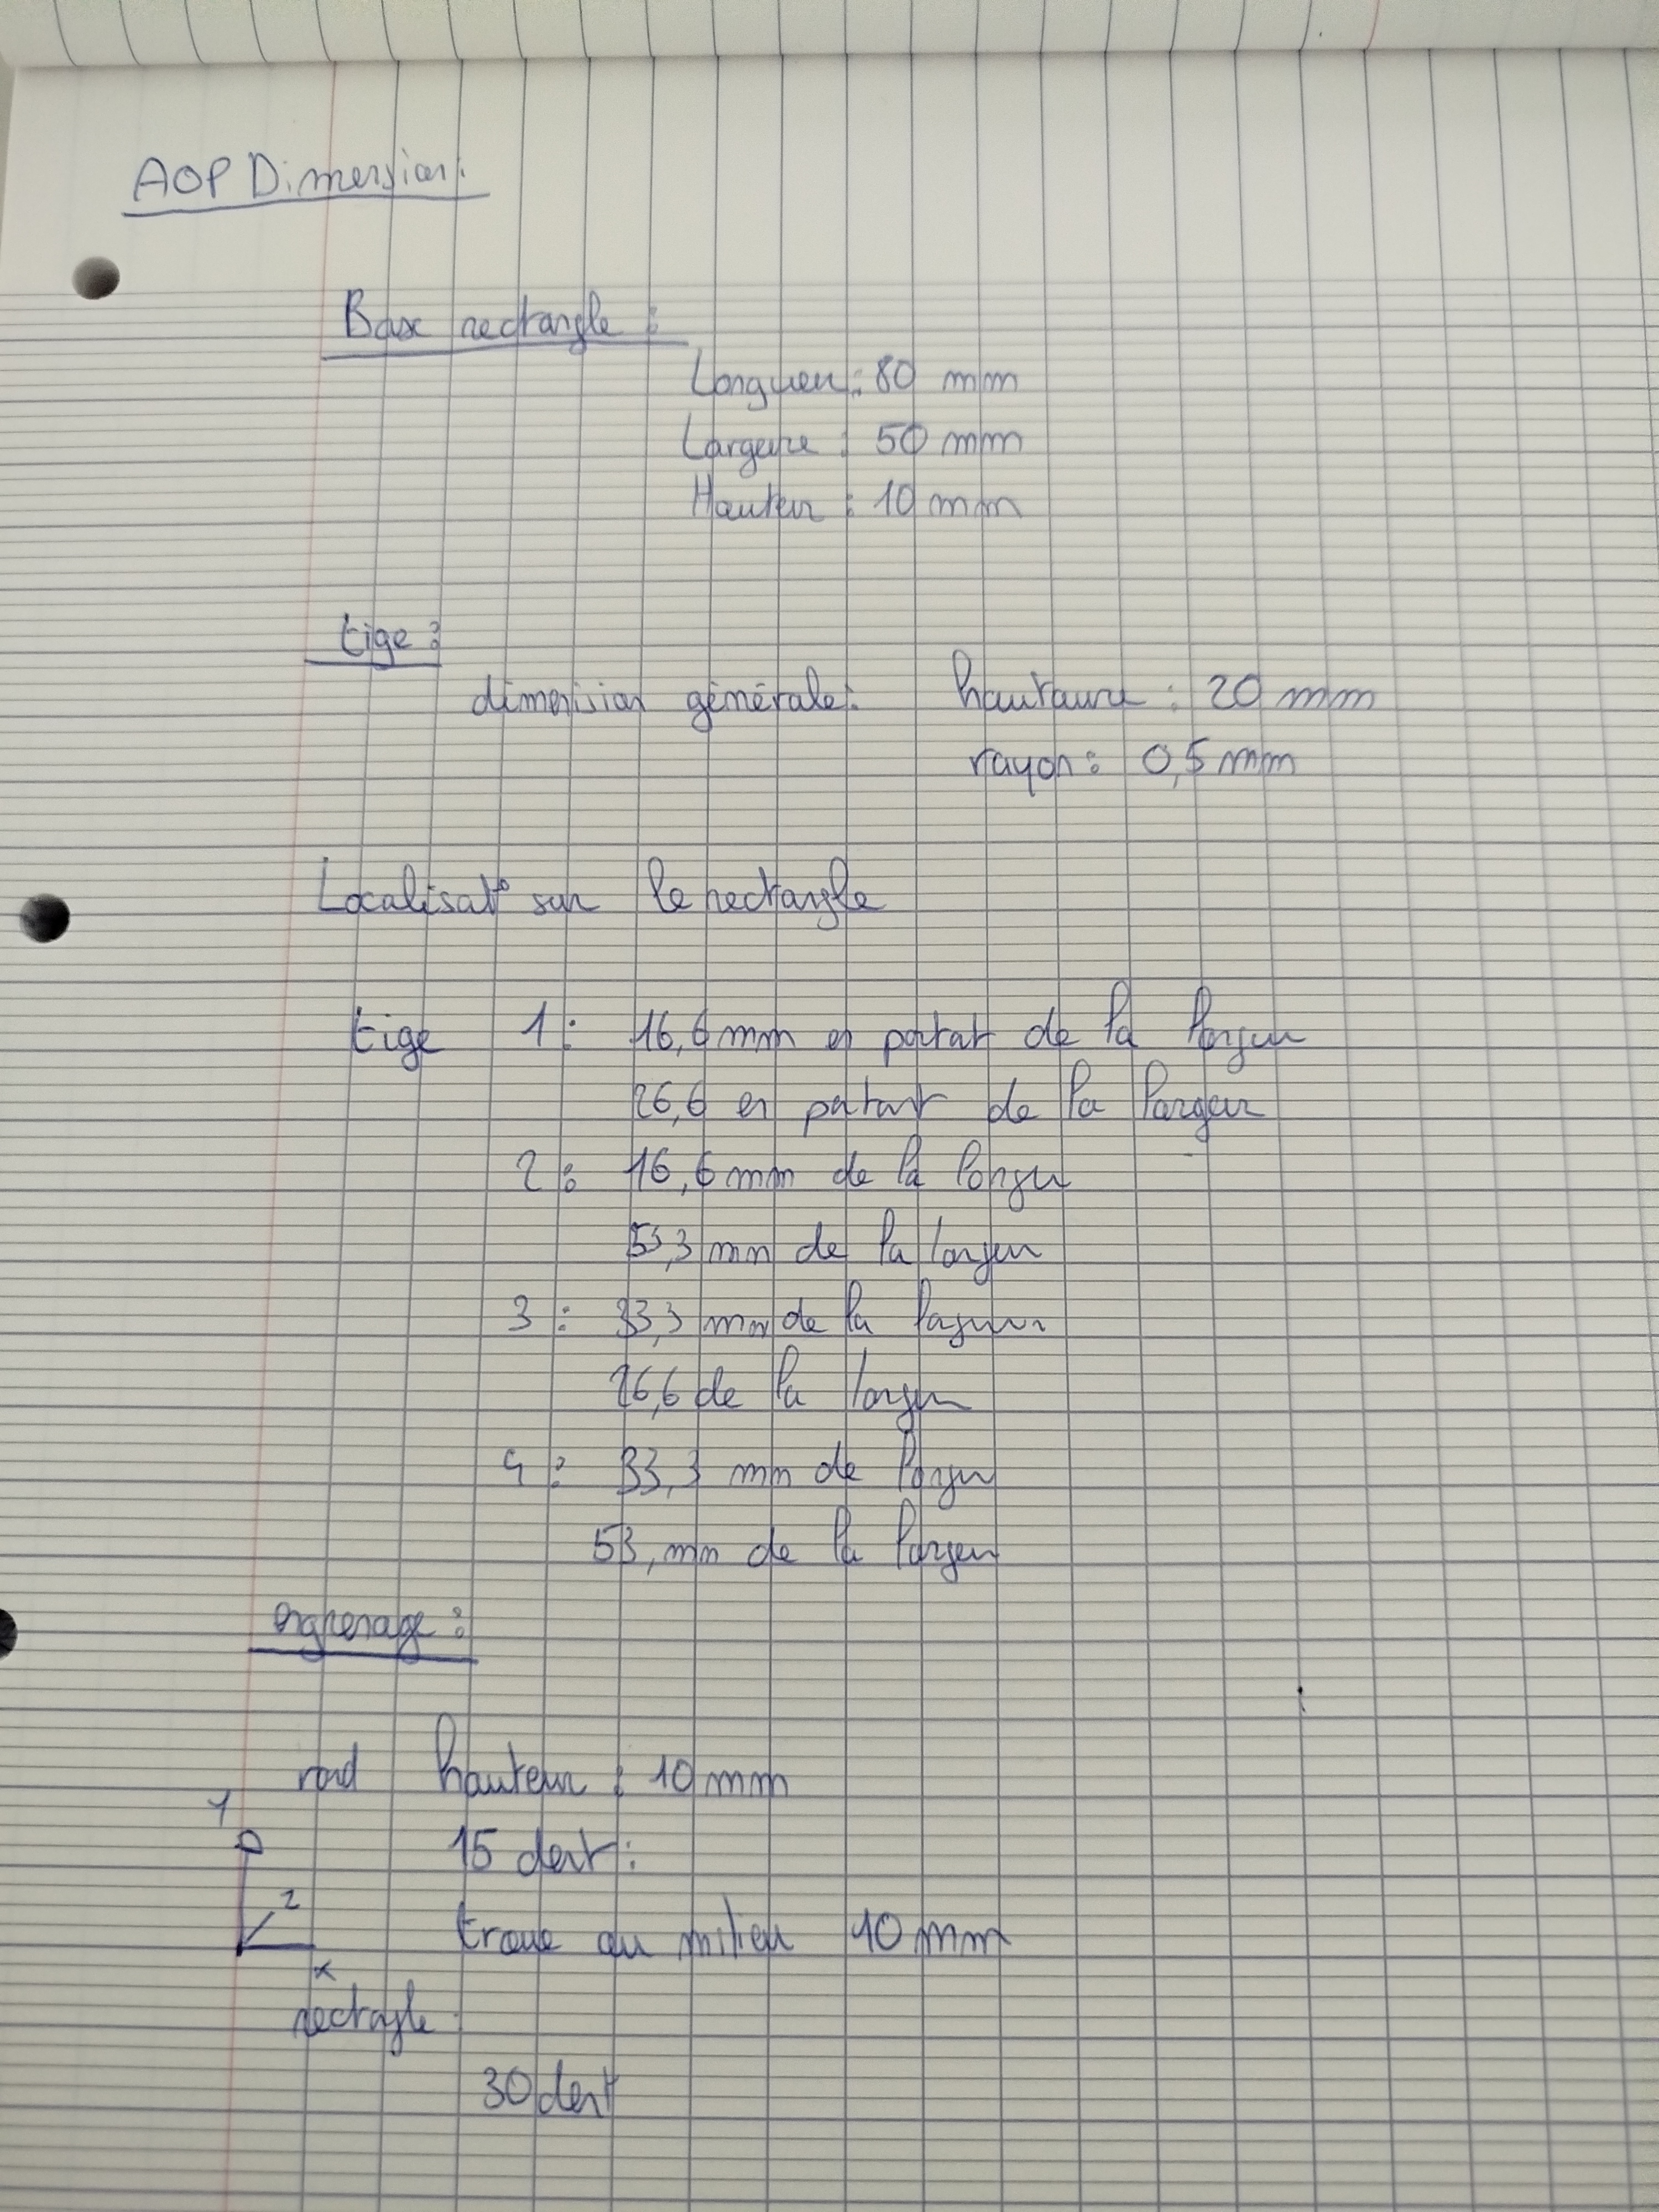 AOP Dimension:
Base rectangle :
Longueur : 80 mm
Largeure : 50 mm
Hauteur : 10 mm
tige :
dimension générale : hauteure : 20 mm
rayon : 0,5 mm
Localisat° sur le rectangle
tige 1 : 16,6 mm en partant de la longueur
26,6 en partant de la largeur
2 : 16,6 mm de la longu
53,3 mm de la
3 : 33,3 mm de la
26,6 de la
4 : 33,3 mm de
53, mm de la largeur
engrenage :
rond hauteur : 10 mm
Y
15 dent :
Z
troue au milieu 10 mm
x
rectagle
30 dent